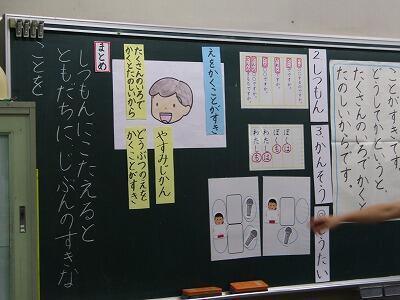 ことがすきです。
どうしてかというと、
たくさんのいろでかくと
たのしいからです。
2 しつもん
3 かんそう
こうたい
ぼくは
ぼくも
わたしは
わたしも
えをかくことがすき
たくさんのいろで
かくとたのしいから
やすみじかん
どうぶつのえを
かくことがすき
まとめ
しつもんにこたえると
ともだちに、じぶんのすきな
ことを